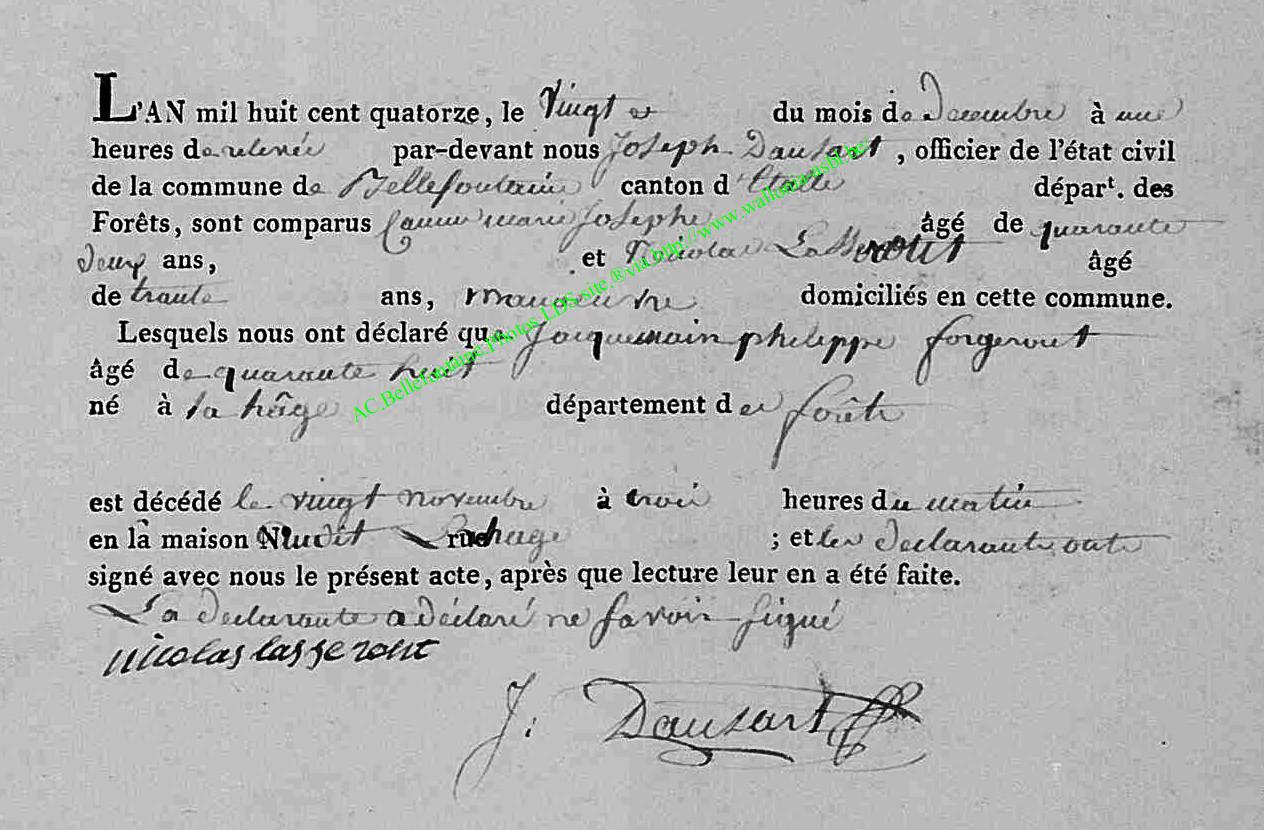 L'AN mil huit cent quatorze, le Vingt du mois de Decembre à une
heures de relevée par-devant nous Joseph Dausart, officier de l'état civil
de la commune de Bellefontaine canton d'Etalle départ. des
Forêts, sont comparus marie Josephe âgé de quarante
deux ans, et Nicolas Lasseront âgé
de trante ans, domiciliés en cette commune.
Lesquels nous ont déclaré que Jacquemain philippe forgeront
âgé de quarante huit
né à la hâge département des forêts
est décédé le vingt novembre à trois heures du matin
en la maison ; et les declarants ont
signé avec nous le présent acte, après que lecture leur en a été faite.
La declarante a déclaré ne savoir signé
nicolas lasseront
J. Dausart
AC.Bellefontaine.Photos.LDS.site.®via.http://www.wallonia